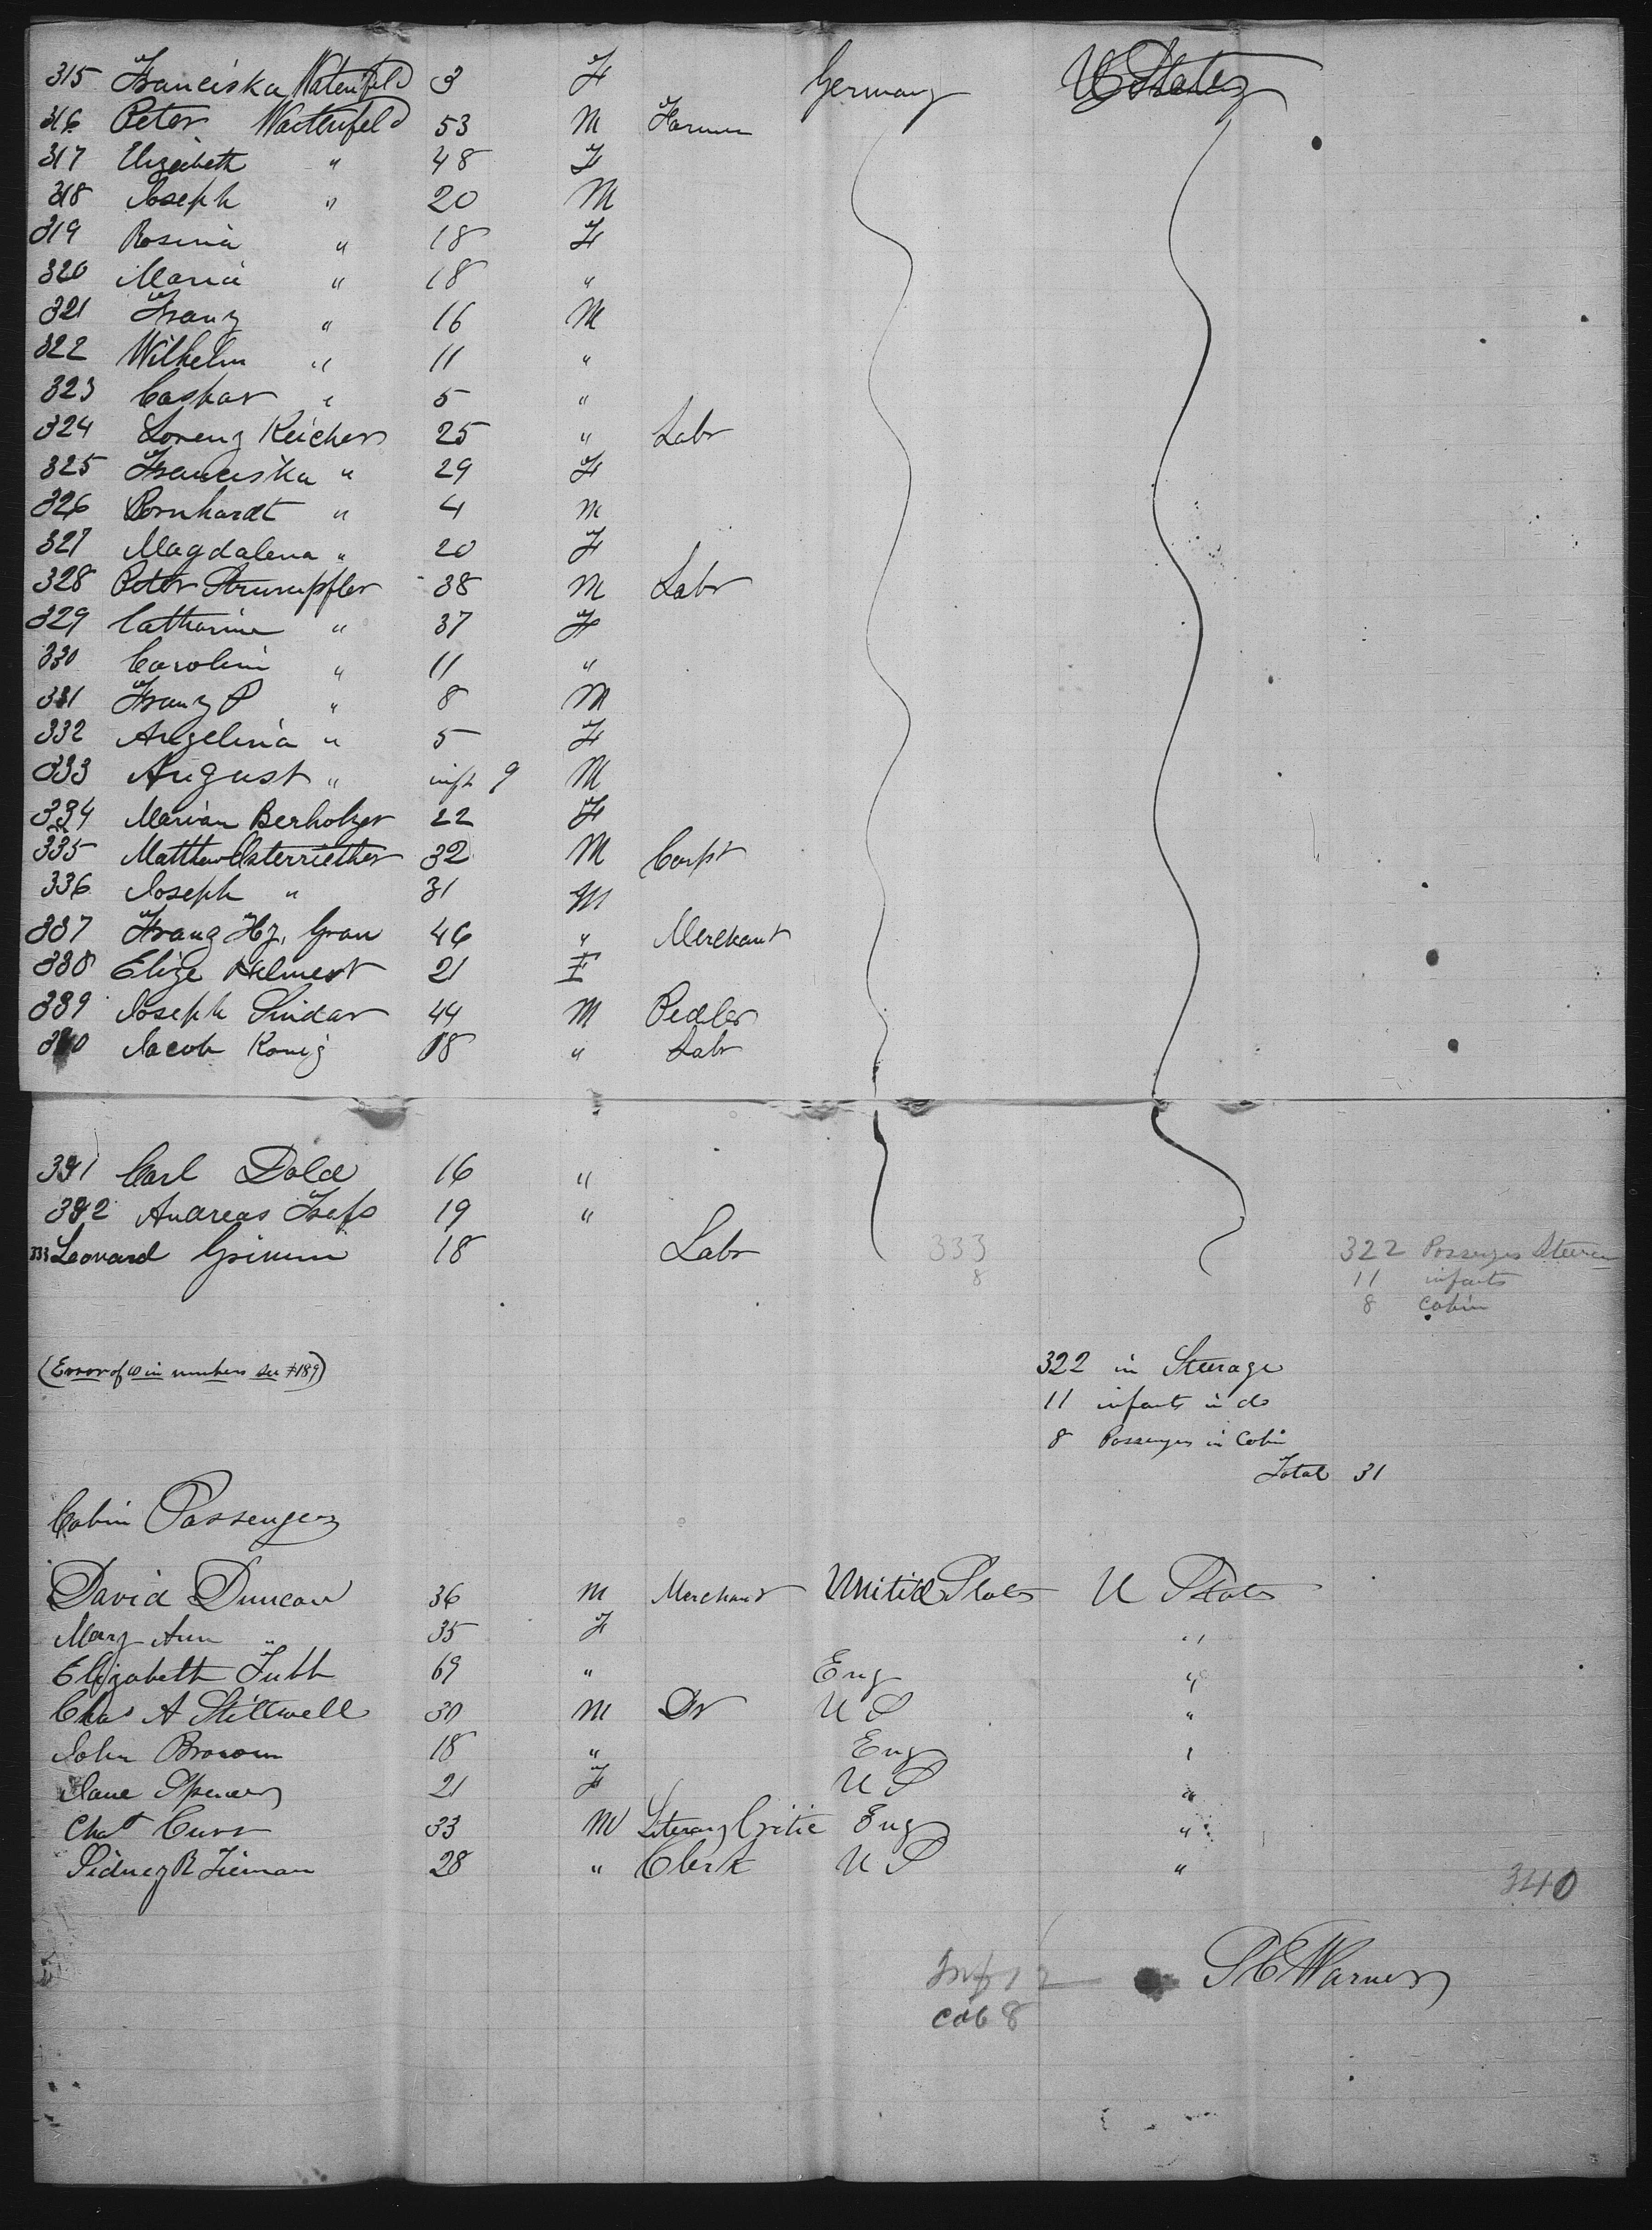 315 Franciska Watenfeld 3 F Germany U States
316 Peter Wartenfeld 53 M Farmer
317 Elizabeth " 48 F
318 Joseph " 20 M
319 Rosina " 18 F
320 Maria " 18 "
321 Franz " 16 M
322 Wilhelm " 11 "
323 Caspar " 5 "
324 Lorenz Reicher 25 " Labr
325 Franciska " 29 F
326 Bernhardt " 4 M
327 Magdalena " 20 F
328 Peter Strumpfler 38 M Labr
329 Catharine " 37 F
330 Carolini " 11 "
331 Franz P " 8 M
332 Angelina " 5 F
333 August " inft 9 M
334 Marian Berholzer 22 F
335 Matthew Osterriether 32 M Carptr
336 Joseph " 31 M
337 Franz Hz. Grau 46 " Merchant
338 Elize Helmert 21 F
339 Joseph Lindar 44 M Pedler
340 Jacob Konig 18 " Labr
331 Carl Dold 16 "
332 Andreas 19 "
333 Leonard Grimm 18 Labr 333 322 Passenges Steerage
8 11 infants
8 cabin
(Error of 10 in numbers see #189)
322 in Steerage
11 infants in do
8 Passenges in Cabin
Total 31
Cabin Passengers
David Duncan 36 M Merchant United States U States
Mary Ann " 35 F "
Elizabeth Tubb 69 " Eng "
Chas A Stillwell 30 M Dr U S "
John Brown 18 " Eng "
Jane Spencer 21 F U S "
Chas Curr 33 M Literary Critic Eng "
Sidney R Tieman 28 " Clerk U S "
340
Inf S C Warner
cab 8